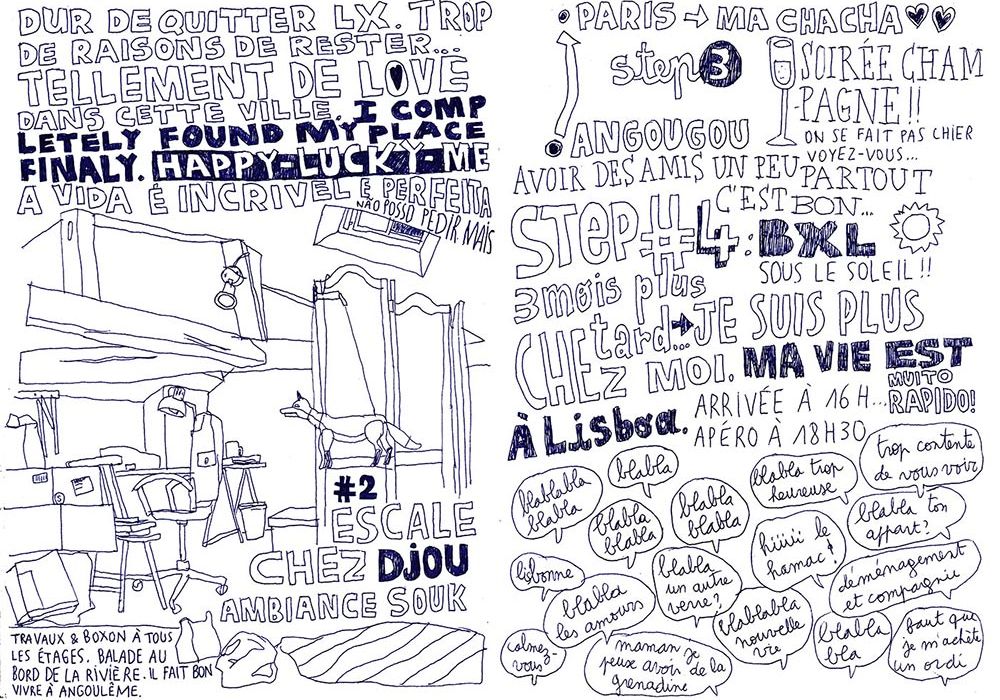 DUR DE QUITTER LX. TROP
DE RAISONS DE RESTER...
TELLEMENT DE LOVE
DANS CETTE VILLE. I COMP
LETELY FOUND MY PLACE
FINALY. HAPPY-LUCKY-ME
A VIDA É INCRIVEL E PERFEITA
NÃO POSSO PEDIR MAIS
#2
ESCALE
CHEZ DJOU
AMBIANCE SOUK
TRAVAUX & BOXON À TOUS
LES ÉTAGES. BALADE AU
BORD DE LA RIVIÈRE. IL FAIT BON
VIVRE À ANGOULÊME.
PARIS → MA CHACHA
step 3
ANGOUGOU
SOIRÉE CHAM
PAGNE!!
ON SE FAIT PAS CHIER
VOYEZ-VOUS...
AVOIR DES AMIS UN PEU PARTOUT
C'EST BON...
STEP #4: BXL
SOUS LE SOLEIL!!
3 mois plus
tard...→ JE SUIS PLUS
CHEZ MOI. MA VIE EST
MUITO
RAPIDO!
À Lisboa.
ARRIVÉE À 16H...
APÉRO À 18H30
blablabla
blabla
blabla
blabla
blabla
blabla
blabla
blabla trop
heureuse
trop contente
de vous voir
blabla ton
appart?
hiiiii le
hamac!
déménagement
et compagnie
lisbonne
blabla
les amours
blabla
un autre
verre?
blablabla
nouvelle
vie
blabla
bla
faut que
je m'achète
un ordi
calmez-
vous
maman je
peux avoir de la
grenadine